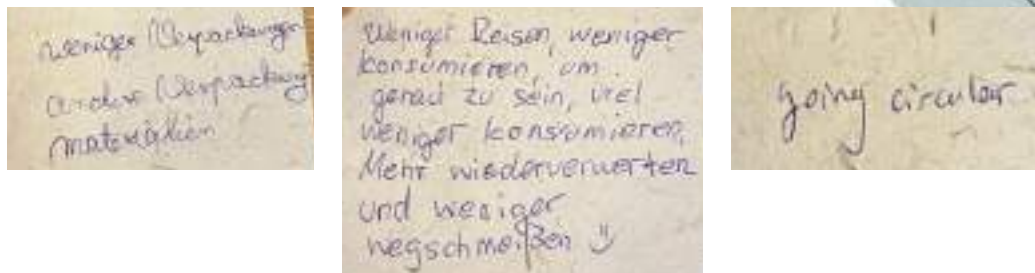 weniger Verpackungen
andere Verpackung
materialien
Weniger Reisen, weniger
konsumieren, um
genau zu sein, viel
weniger konsumieren,
Mehr wiederverwerten
und weniger
wegschmeißen
going circular